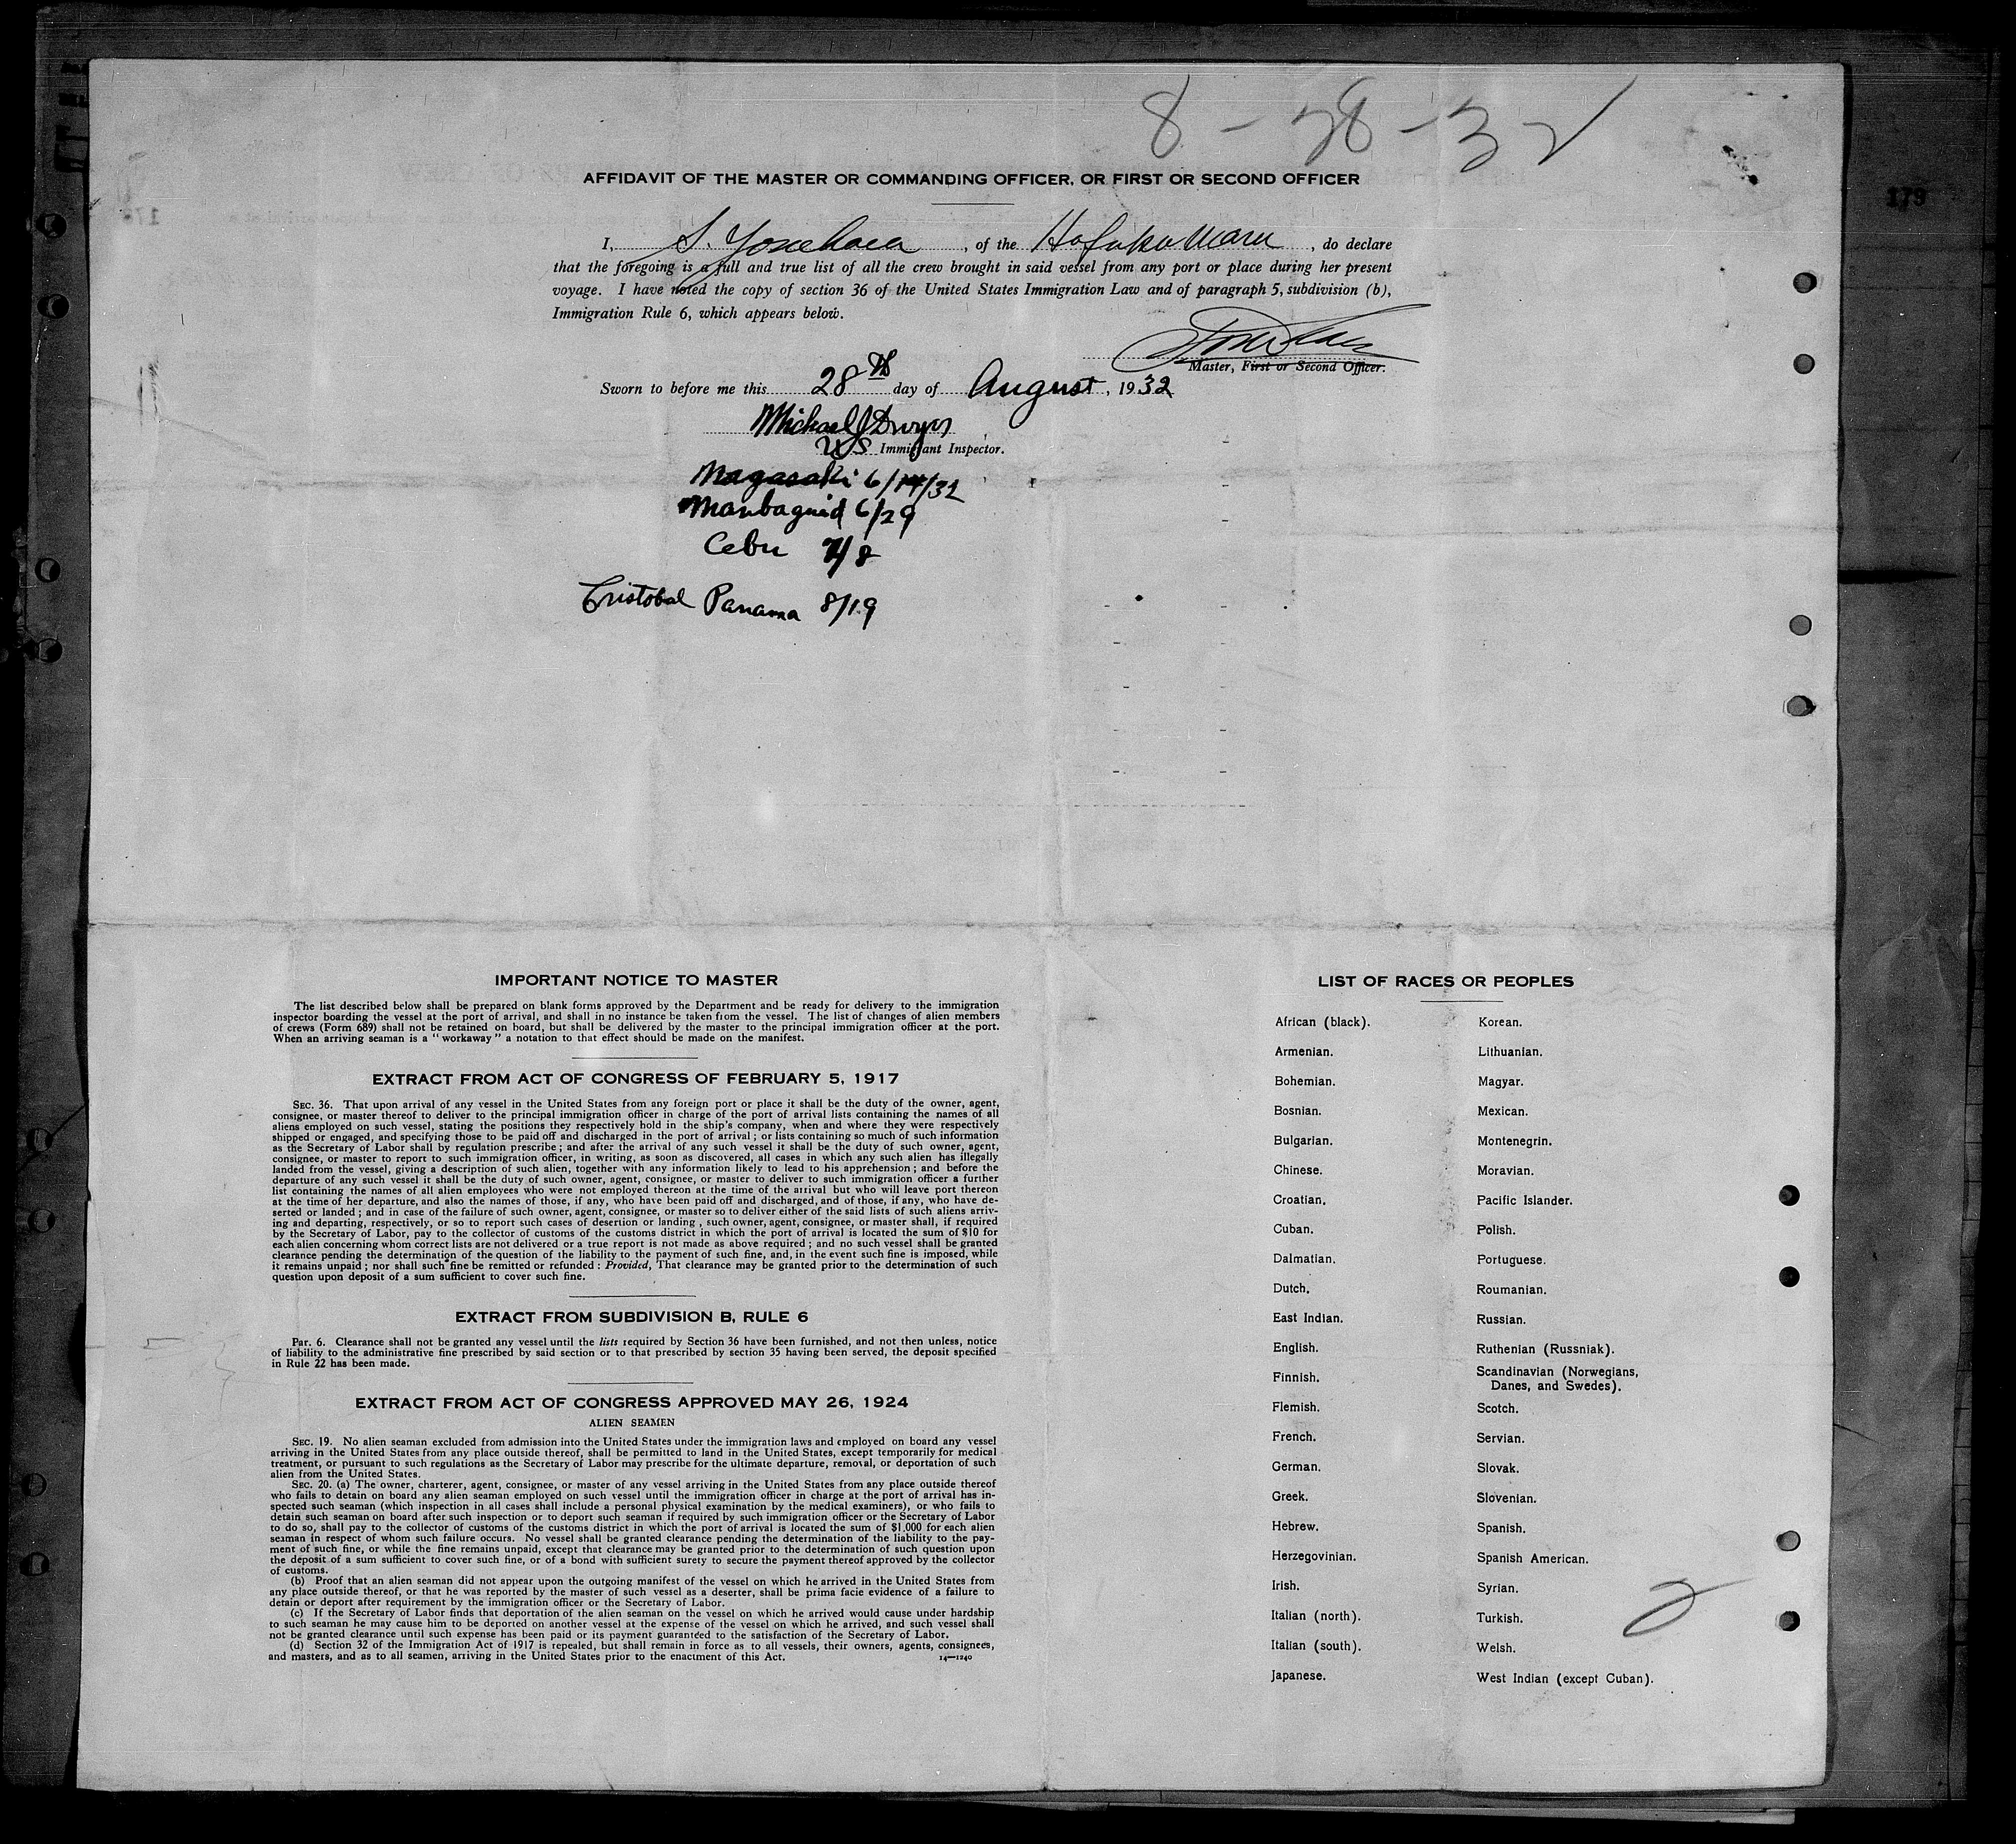 8-28-32
AFFIDAVIT OF THE MASTER OR COMMANDING OFFICER, OR FIRST OR SECOND OFFICER
I, S. Yonehara, of the Hofuku Maru, do declare
that the foregoing is a full and true list of all the crew brought in said vessel from any port or place during her present
voyage. I have noted the copy of section 36 of the United States Immigration Law and of paragraph 5, subdivision (b),
Immigration Rule 6, which appears below.
Master, First or Second Officer.
Sworn to before me this 28th day of August, 1932
Michael J Dwyer
US Immigrant Inspector.
Nagasaki 6/14/32
Manbaguid 6/29
Cebu 7/8
Cristobal Panama 8/19
179
IMPORTANT NOTICE TO MASTER
The list described below shall be prepared on blank forms approved by the Department and be ready for delivery to the immigration
inspector boarding the vessel at the port of arrival, and shall in no instance be taken from the vessel. The list of changes of alien members
of crews (Form 689) shall not be retained on board, but shall be delivered by the master to the principal immigration officer at the port.
When an arriving seaman is a "workaway" a notation to that effect should be made on the manifest.
EXTRACT FROM ACT OF CONGRESS OF FEBRUARY 5, 1917
SEC. 36. That upon arrival of any vessel in the United States from any foreign port or place it shall be the duty of the owner, agent,
consignee, or master thereof to deliver to the principal immigration officer in charge of the port of arrival lists containing the names of all
aliens employed on such vessel, stating the positions they respectively hold in the ship's company, when and where they were respectively
shipped or engaged, and specifying those to be paid off and discharged in the port of arrival; or lists containing so much of such information
as the Secretary of Labor shall by regulation prescribe; and after the arrival of any such vessel it shall be the duty of such owner, agent,
consignee, or master to report to such immigration officer, in writing, as soon as discovered, all cases in which any such alien has illegally
landed from the vessel, giving a description of such alien, together with any information likely to lead to his apprehension; and before the
departure of any such vessel it shall be the duty of such owner, agent, consignee, or master to deliver to such immigration officer a further
list containing the names of all alien employees who were not employed thereon at the time of the arrival but who will leave port thereon
at the time of her departure, and also the names of those, if any, who have been paid off and discharged, and of those, if any, who have de-
serted or landed; and in case of the failure of such owner, agent, consignee, or master so to deliver either of the said lists of such aliens arriv-
ing and departing, respectively, or so to report such cases of desertion or landing, such owner, agent, consignee, or master shall, if required
by the Secretary of Labor, pay to the collector of customs of the customs district in which the port of arrival is located the sum of $10 for
each alien concerning whom correct lists are not delivered or a true report is not made as above required; and no such vessel shall be granted
clearance pending the determination of the question of the liability to the payment of such fine, and, in the event such fine is imposed, while
it remains unpaid; nor shall such fine be remitted or refunded: Provided, That clearance may be granted prior to the determination of such
question upon deposit of a sum sufficient to cover such fine.
EXTRACT FROM SUBDIVISION B, RULE 6
Par. 6. Clearance shall not be granted any vessel until the lists required by Section 36 have been furnished, and not then unless, notice
of liability to the administrative fine prescribed by said section or to that prescribed by section 35 having been served, the deposit specified
in Rule 22 has been made.
EXTRACT FROM ACT OF CONGRESS APPROVED MAY 26, 1924
ALIEN SEAMEN
SEC. 19. No alien seaman excluded from admission into the United States under the immigration laws and employed on board any vessel
arriving in the United States from any place outside thereof, shall be permitted to land in the United States, except temporarily for medical
treatment, or pursuant to such regulations as the Secretary of Labor may prescribe for the ultimate departure, removal, or deportation of such
alien from the United States.
SEC. 20. (a) The owner, charterer, agent, consignee, or master of any vessel arriving in the United States from any place outside thereof
who fails to detain on board any alien seaman employed on such vessel until the immigration officer in charge at the port of arrival has in-
spected such seaman (which inspection in all cases shall include a personal physical examination by the medical examiners), or who fails to
detain such seaman on board after such inspection or to deport such seaman if required by such immigration officer or the Secretary of Labor
to do so, shall pay to the collector of customs of the customs district in which the port of arrival is located the sum of $1,000 for each alien
seaman in respect of whom such failure occurs. No vessel shall be granted clearance pending the determination of the liability to the pay-
ment of such fine, or while the fine remains unpaid, except that clearance may be granted prior to the determination of such question upon
the deposit of a sum sufficient to cover such fine, or of a bond with sufficient surety to secure the payment thereof approved by the collector
of customs.
(b) Proof that an alien seaman did not appear upon the outgoing manifest of the vessel on which he arrived in the United States from
any place outside thereof, or that he was reported by the master of such vessel as a deserter, shall be prima facie evidence of a failure to
detain or deport after requirement by the immigration officer or the Secretary of Labor.
(c) If the Secretary of Labor finds that deportation of the alien seaman on the vessel on which he arrived would cause under hardship
to such seaman he may cause him to be deported on another vessel at the expense of the vessel on which he arrived, and such vessel shall
not be granted clearance until such expense has been paid or its payment guaranteed to the satisfaction of the Secretary of Labor.
(d) Section 32 of the Immigration Act of 1917 is repealed, but shall remain in force as to all vessels, their owners, agents, consignees,
and masters, and as to all seamen, arriving in the United States prior to the enactment of this Act.
14—1240
LIST OF RACES OR PEOPLES
African (black).
Armenian.
Bohemian.
Bosnian.
Bulgarian.
Chinese.
Croatian.
Cuban.
Dalmatian.
Dutch.
East Indian.
English.
Finnish.
Flemish.
French.
German.
Greek.
Hebrew.
Herzegovinian.
Irish.
Italian (north).
Italian (south).
Japanese.
Korean.
Lithuanian.
Magyar.
Mexican.
Montenegrin.
Moravian.
Pacific Islander.
Polish.
Portuguese.
Roumanian.
Russian.
Ruthenian (Russniak).
Scandinavian (Norwegians,
Danes, and Swedes).
Scotch.
Servian.
Slovak.
Slovenian.
Spanish.
Spanish American.
Syrian.
Turkish.
Welsh.
West Indian (except Cuban).
2